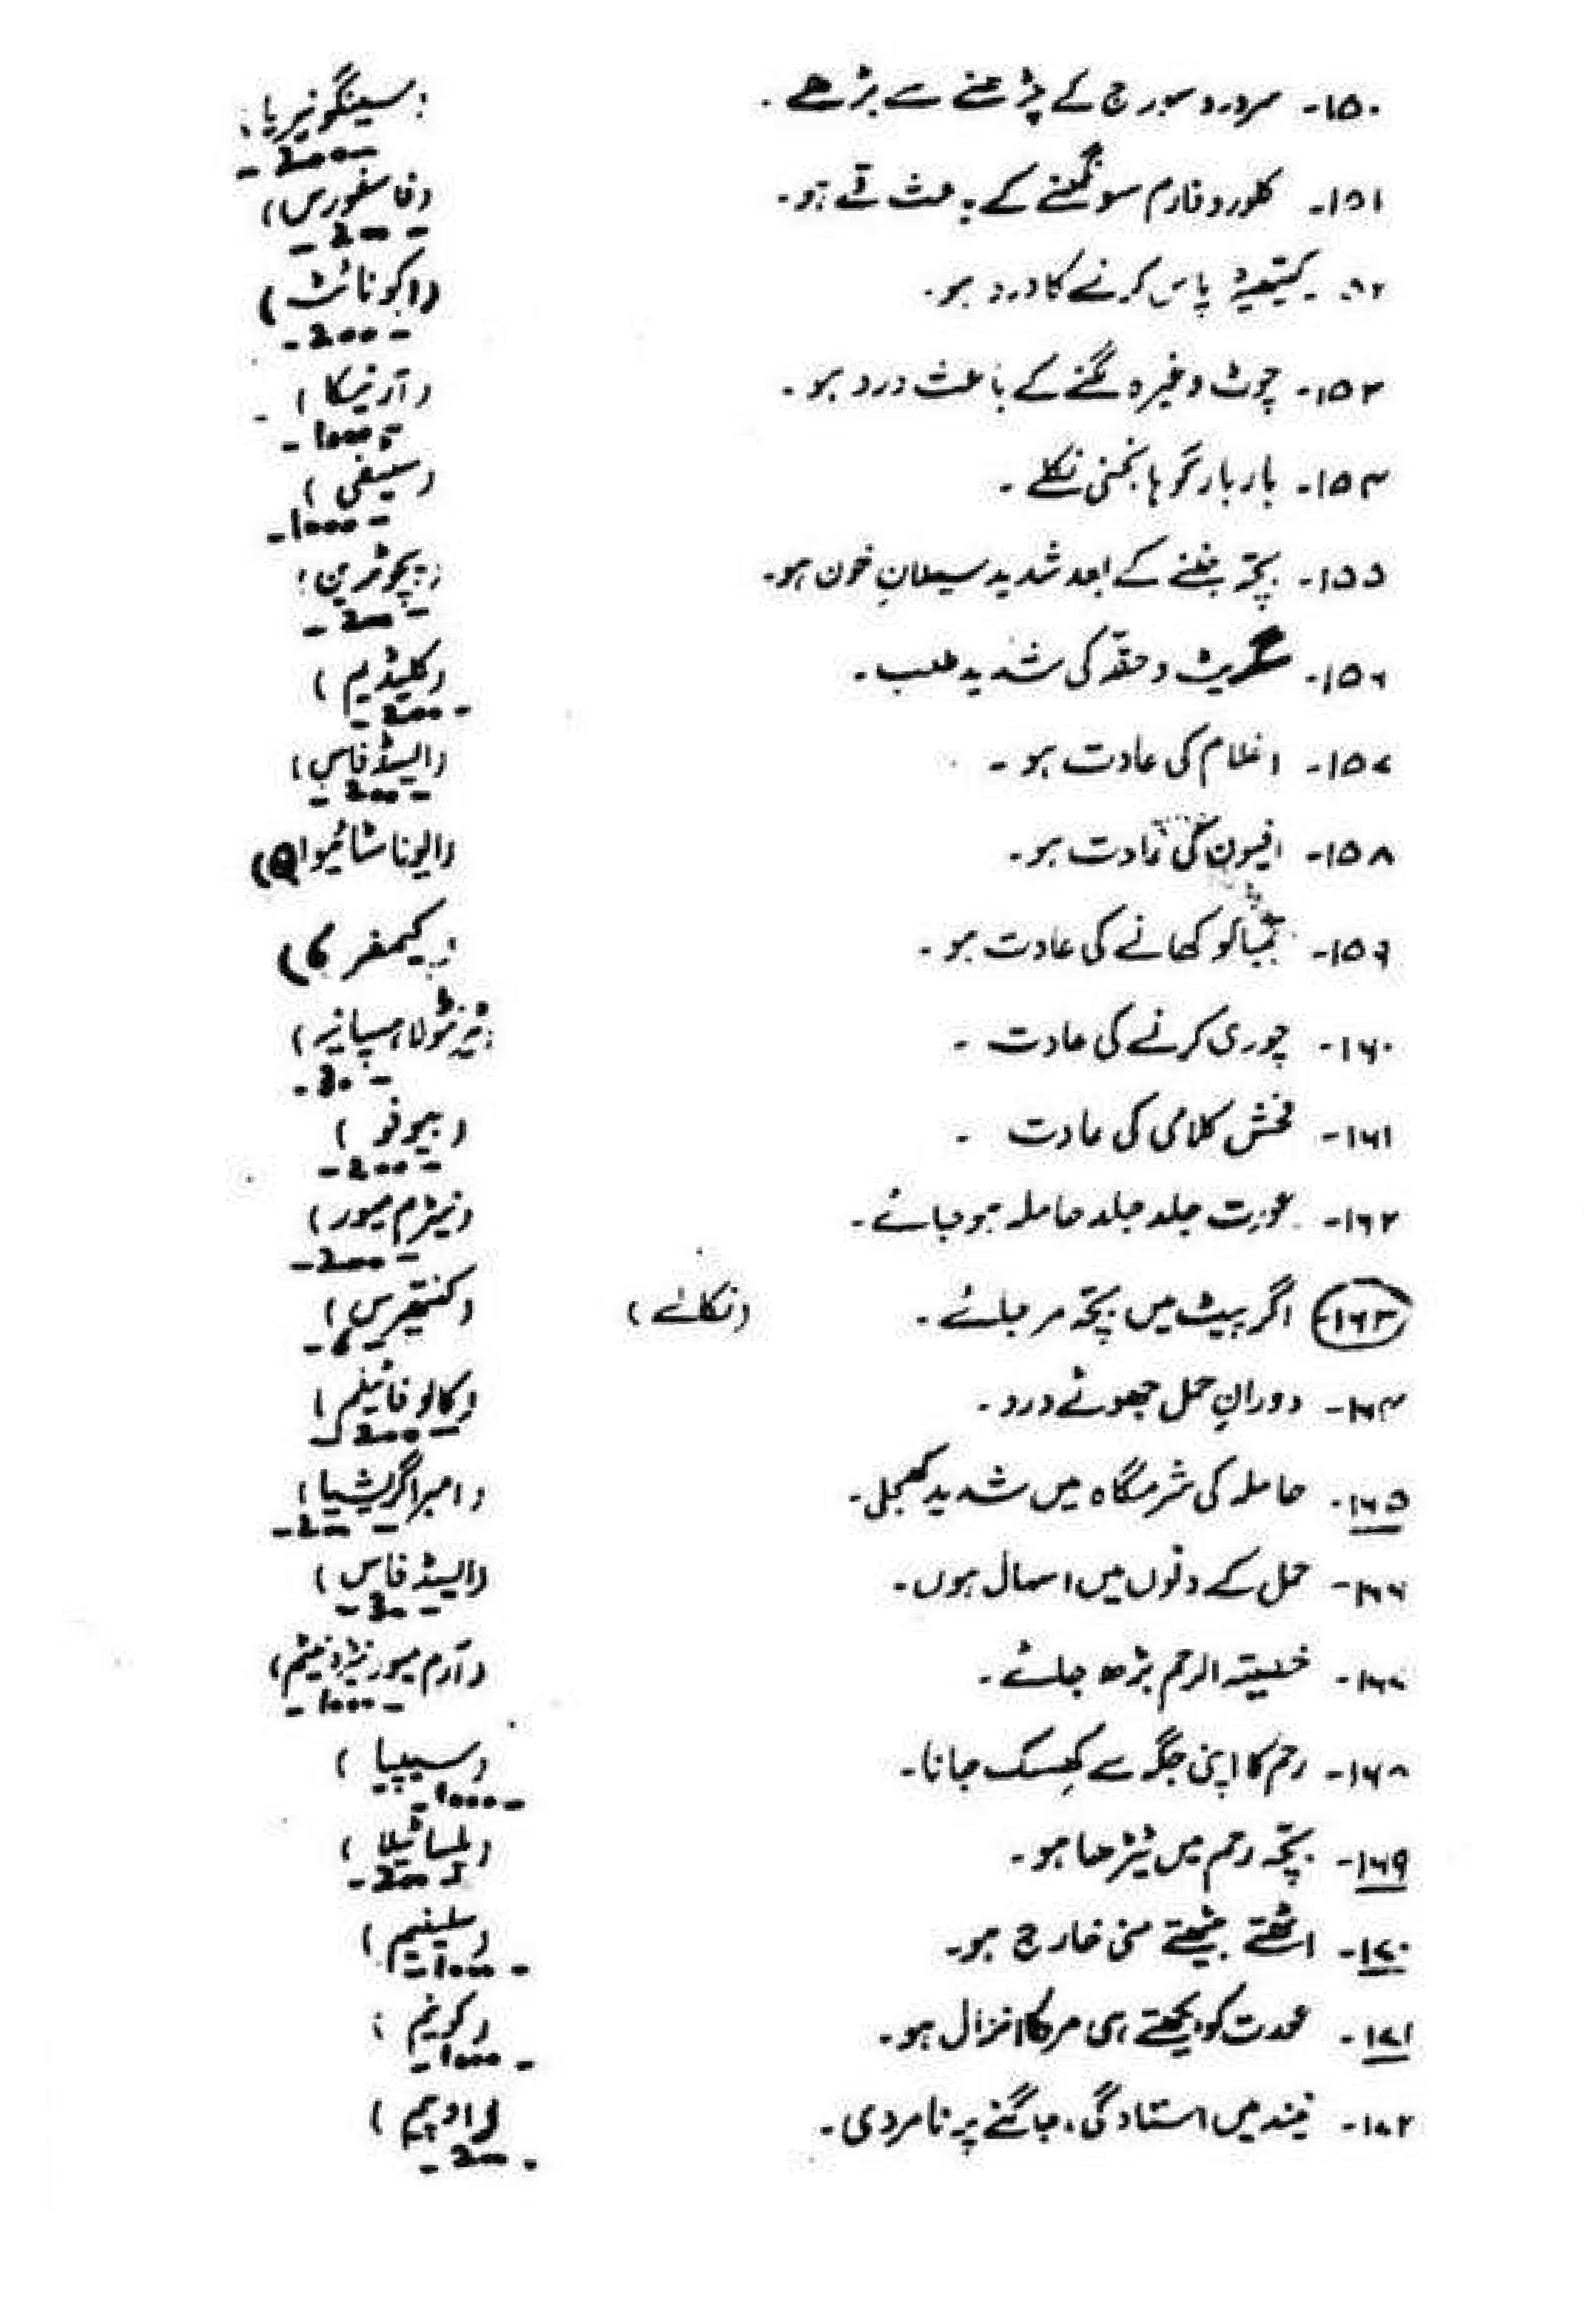 ۱۵۰- سردرد سورج کے چڑھنے سے بڑھے۔ (سینگونیریا)
-200-
۱۵۱- کلوروفارم سونگھنے کے باعث قے ہو۔ (فاسفورس)
-200-
کیتھیٹر پاس کرنے کا درد ہو۔ (اکونائٹ)
-200-
۱۵۳- چوٹ وغیرہ لگنے کے باعث درد ہو۔ (آرنیکا)
-1000-
۱۵۴- بار بار گوہانجنی نکلے۔ (سٹیفی)
-1000-
۱۵۵- بچہ جننے کے بعد شدید سیلانِ خون ہو۔ (پچوٹرین)
-200-
۱۵۶- سگریٹ و حقہ کی شدید طلب۔ (کلیڈیم)
-200-
۱۵۷- اغلام کی عادت ہو۔ (ایسڈ فاس)
-200-
۱۵۸- افیون کی عادت ہو۔ (ایونا سٹائیوا Q)
۱۵۹- تمباکو کھانے کی عادت ہو۔ (کیمفر 6)
۱۶۰- چوری کرنے کی عادت۔ (ٹیرنٹولا ہسپانیہ)
-30-
۱۶۱- فحش کلامی کی عادت۔ (بیوفو)
-200-
۱۶۲- عورت جلد جلد حاملہ ہو جائے۔ (نیٹرم میور)
-200-
۱۶۳- اگر پیٹ میں بچہ مر جائے۔ (نکالنے) (کنتھرس)
-6-
۱۶۴- دورانِ حمل جھوٹے درد۔ (کالوفائیلم)
-200-
۱۶۵- حاملہ کی شرمگاہ میں شدید کھجلی۔ (امبرا گریشیا)
-200-
۱۶۶- حمل کے دنوں میں اسہال ہوں۔ (ایسڈ فاس)
-30-
۱۶۷- خصیتہ الرحم بڑھ جائے۔ (آرم میور نیٹرونیٹم)
-1000-
۱۶۸- رحم کا اپنی جگہ سے کھسک جانا۔ (سیپیا)
-1000-
۱۶۹- بچہ رحم میں ٹیڑھا ہو۔ (پلساٹیلا)
-200-
۱۷۰- اٹھتے بیٹھتے منی خارج ہو۔ (سلینیم)
-1000-
۱۷۱- عورت کو دیکھتے ہی مرد کا انزال ہو۔ (کونیم)
-1000-
۱۷۲- نیند میں استادگی، جاگنے پر نامردی۔ (اوپیم)
-200-